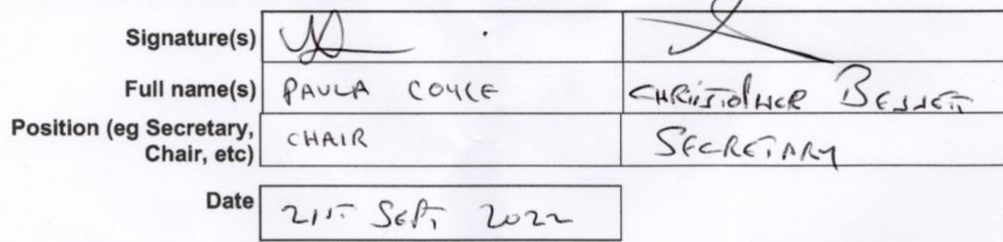 Signature(s)
Full name(s) PAULA COYLE CHRISTOPHER BENNETT
Position (eg Secretary, Chair, etc) CHAIR SECRETARY
Date 21ST SEPT 2022